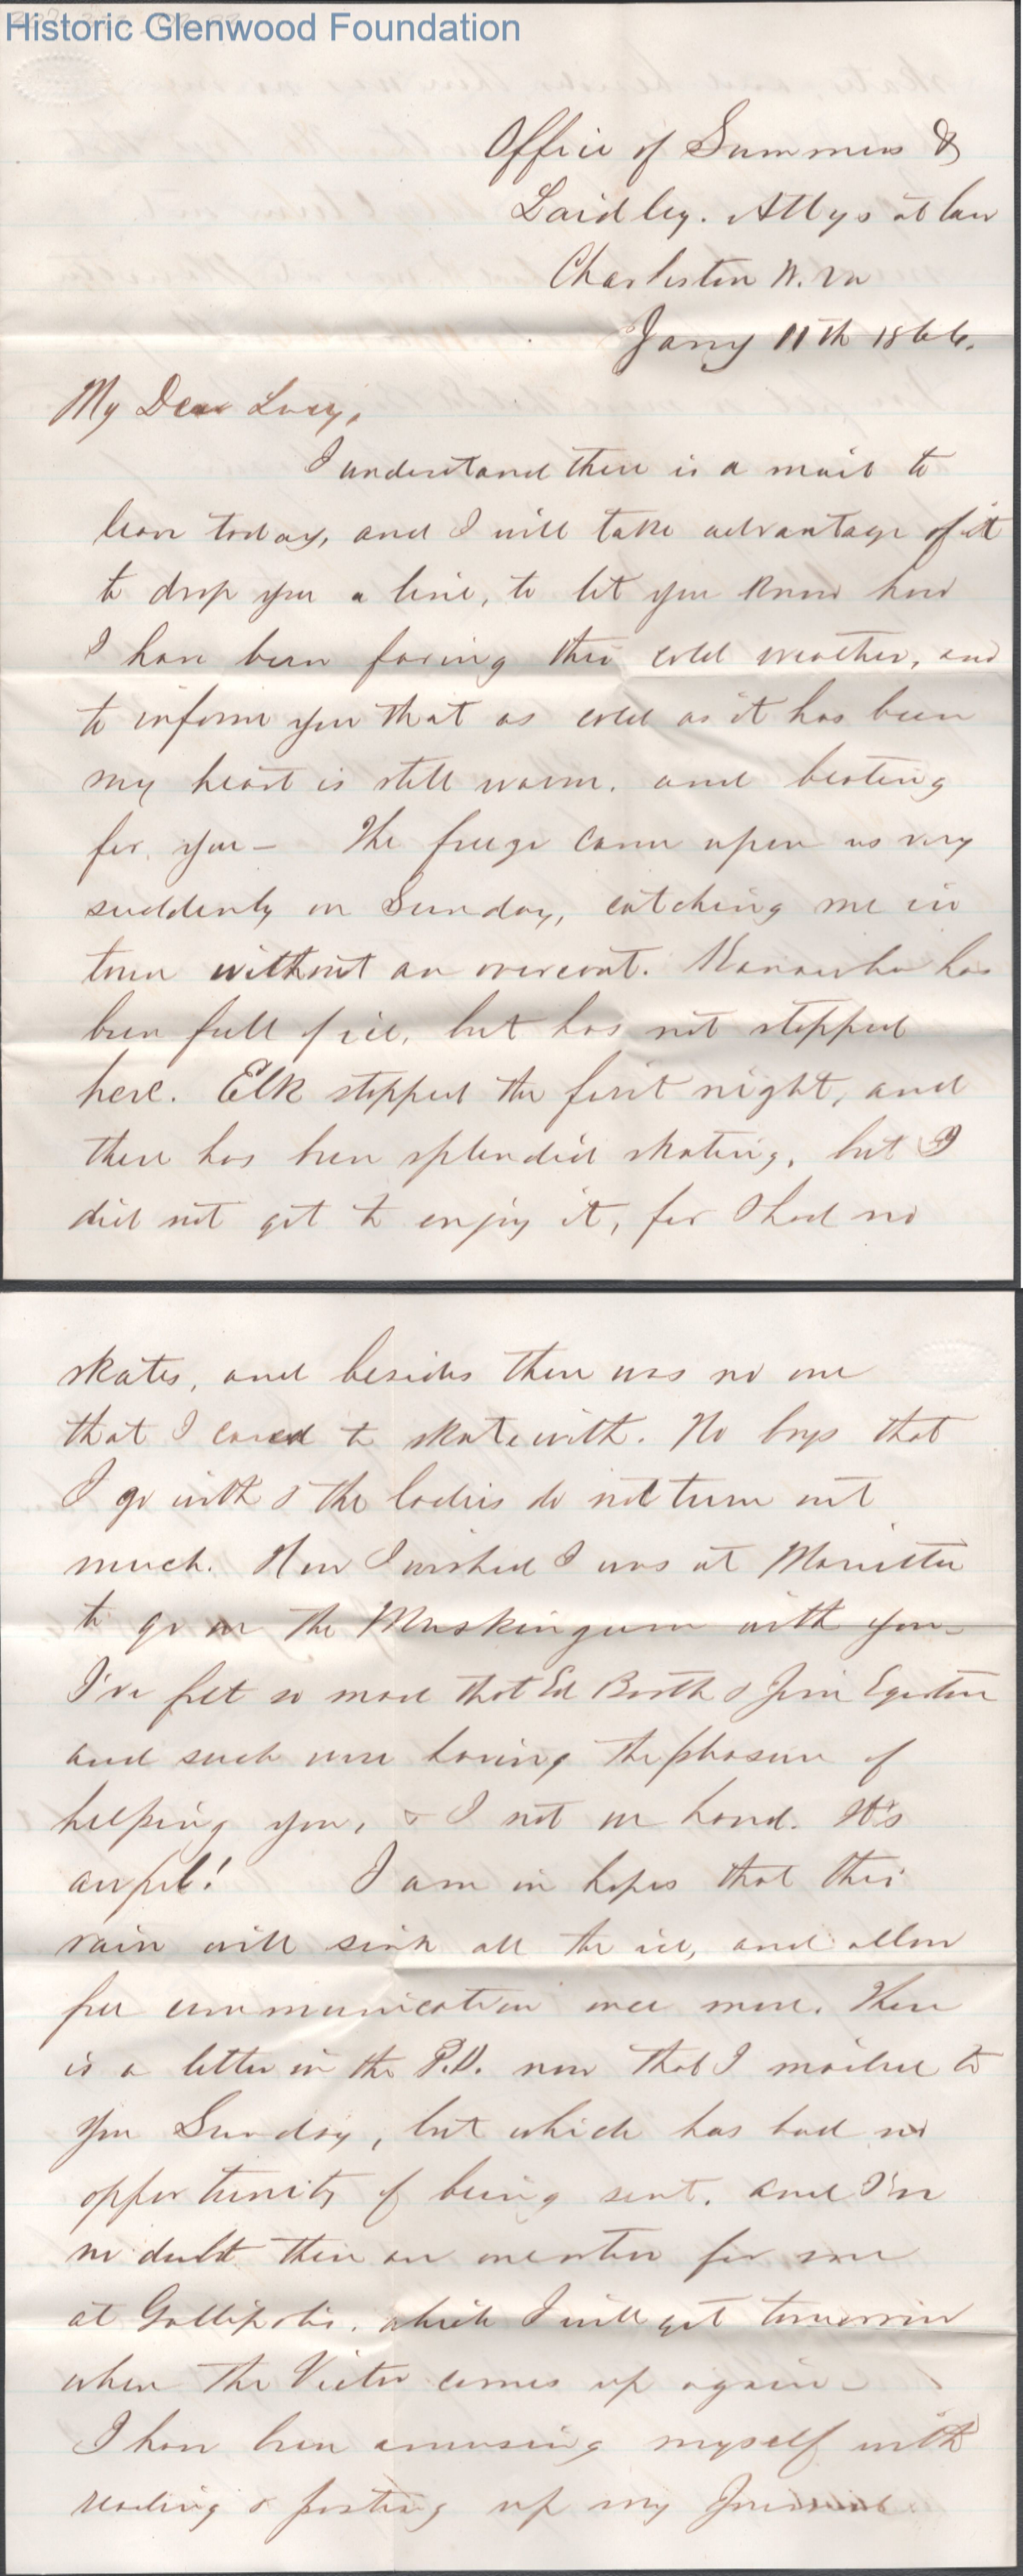 Historic Glenwood Foundation
Office of Summers &
Laidley. Attys at law
Charleston W. Va
Jany 11th 1866.
My Dear Lucy,
I understand there is a mail to
leave today, and I will take advantage of it
to drop you a line, to let you know how
I have been faring this cold weather, and
to inform you that as cold as it has been
my heart is still warm, and beating
for you — The freeze came upon us very
suddenly on Sunday, catching me in
town without an overcoat. Kanawha has
been full of ice, but has not stopped
here. Elk stopped the first night, and
there has been splendid skating, but I
did not get to enjoy it, for I had no
skates, and besides there was no one
that I cared to skate with. No boys that
I go with & the ladies do not turn out
much. How I wished I was at Marietta
to go on the Muskingum with you—
I've felt so mad that Ed Booth & Jim Egerton
and such were having the pleasure of
helping you, & I not on hand. It's
awful! I am in hopes that this
rain will sink all the ice, and allow
free communication once more. There
is a letter in the P.O. now that I mailed to
you Sunday, but which has had no
opportunity of being sent. and I've
no doubt there are one or two for me
at Gallipolis. which I will get tomorrow
when the Victor comes up again—
I have been amusing myself with
reading & posting up my Journal